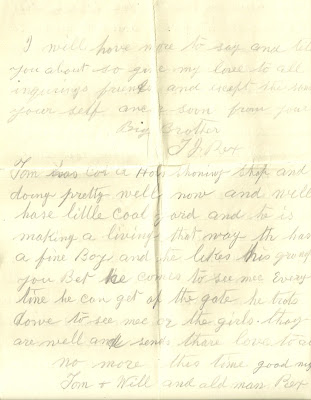 I will have more to say and tell
you about so give my love to all
inquiring friends and except the same
your self ance soon from your
Big Brother
T J Rex
Tom has co a Hors Shoning Shop and
doing pretty well now and will
hase little Coal yard and he is
making a living that way th has
a fine Boy and he likes his grand
you Bet he comes to see mee Every
time he can get of the gate he hools
dowe to see mee or the girls. thay
are well and sends there love to all
no more this time good nig
Tom & Will and old man Rex